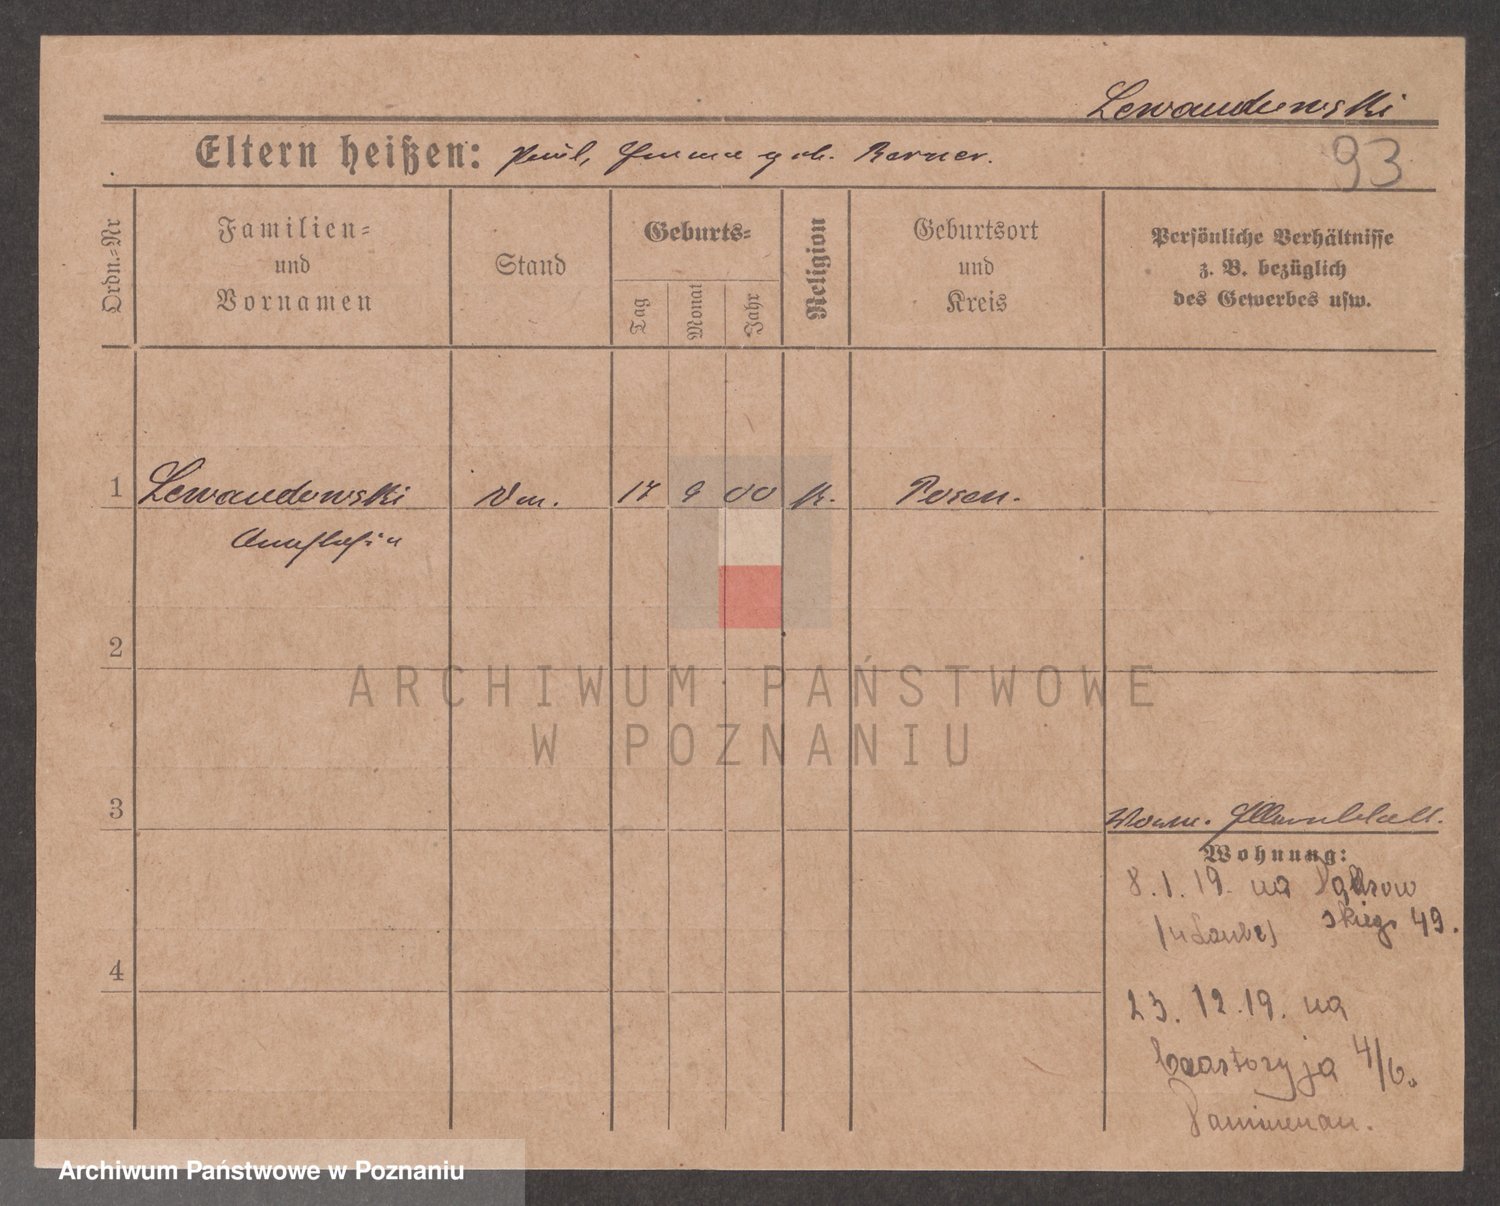 Lewandowski
Eltern heißen: Paul, Emma geb. Berner.
93
Ordn.-Nr
Familien-
und
Vornamen
Stand
Geburts-
Tag
Monat
Jahr
Religion
Geburtsort
und
Kreis
Persönliche Verhältnisse
z. B. bezüglich
des Gewerbes usw.
1 Lewandowski 17 9 00 K. Posen.
2
3
4
Wohnung:
8.1.19. na
skiego 49.
23. 12. 19. na
4/6.
ARCHIWUM PAŃSTWOWE
W POZNANIU
Archiwum Państwowe w Poznaniu